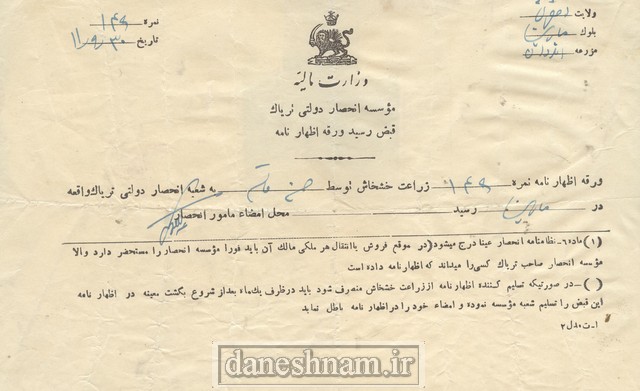 ولایت اصفهان
بلوک ماربین
مزرعه
نمره ۱۴۵
تاریخ
وزارت مالیه
مؤسسه انحصار دولتی تریاک
قبض رسید ورقه اظهار نامه
ورقه اظهار نامه نمره ۱۴۵ زراعت خشخاش توسط به شعبه انحصار دولتی تریاک واقعه
در ماربین رسید محل امضاء مامور انحصار
(۱) ماده ٦- نظامنامه انحصار عینا درج میشود (در موقع فروش یا انتقال هر ملکی مالک آن باید فورا مؤسسه انحصار را مستحضر دارد والا
مؤسسه انحصار صاحب تریاک کسی را میداند که اظهار نامه داده است
( ) - در صورتیکه تسلیم کننده اظهار نامه از زراعت خشخاش منصرف شود باید در ظرف یک ماه بعد از شروع بکشت معینه در اظهار نامه
این قبض را تسلیم شعبه مؤسسه نموده و امضاء خود را در اظهار نامه باطل نماید
daneshnam.ir